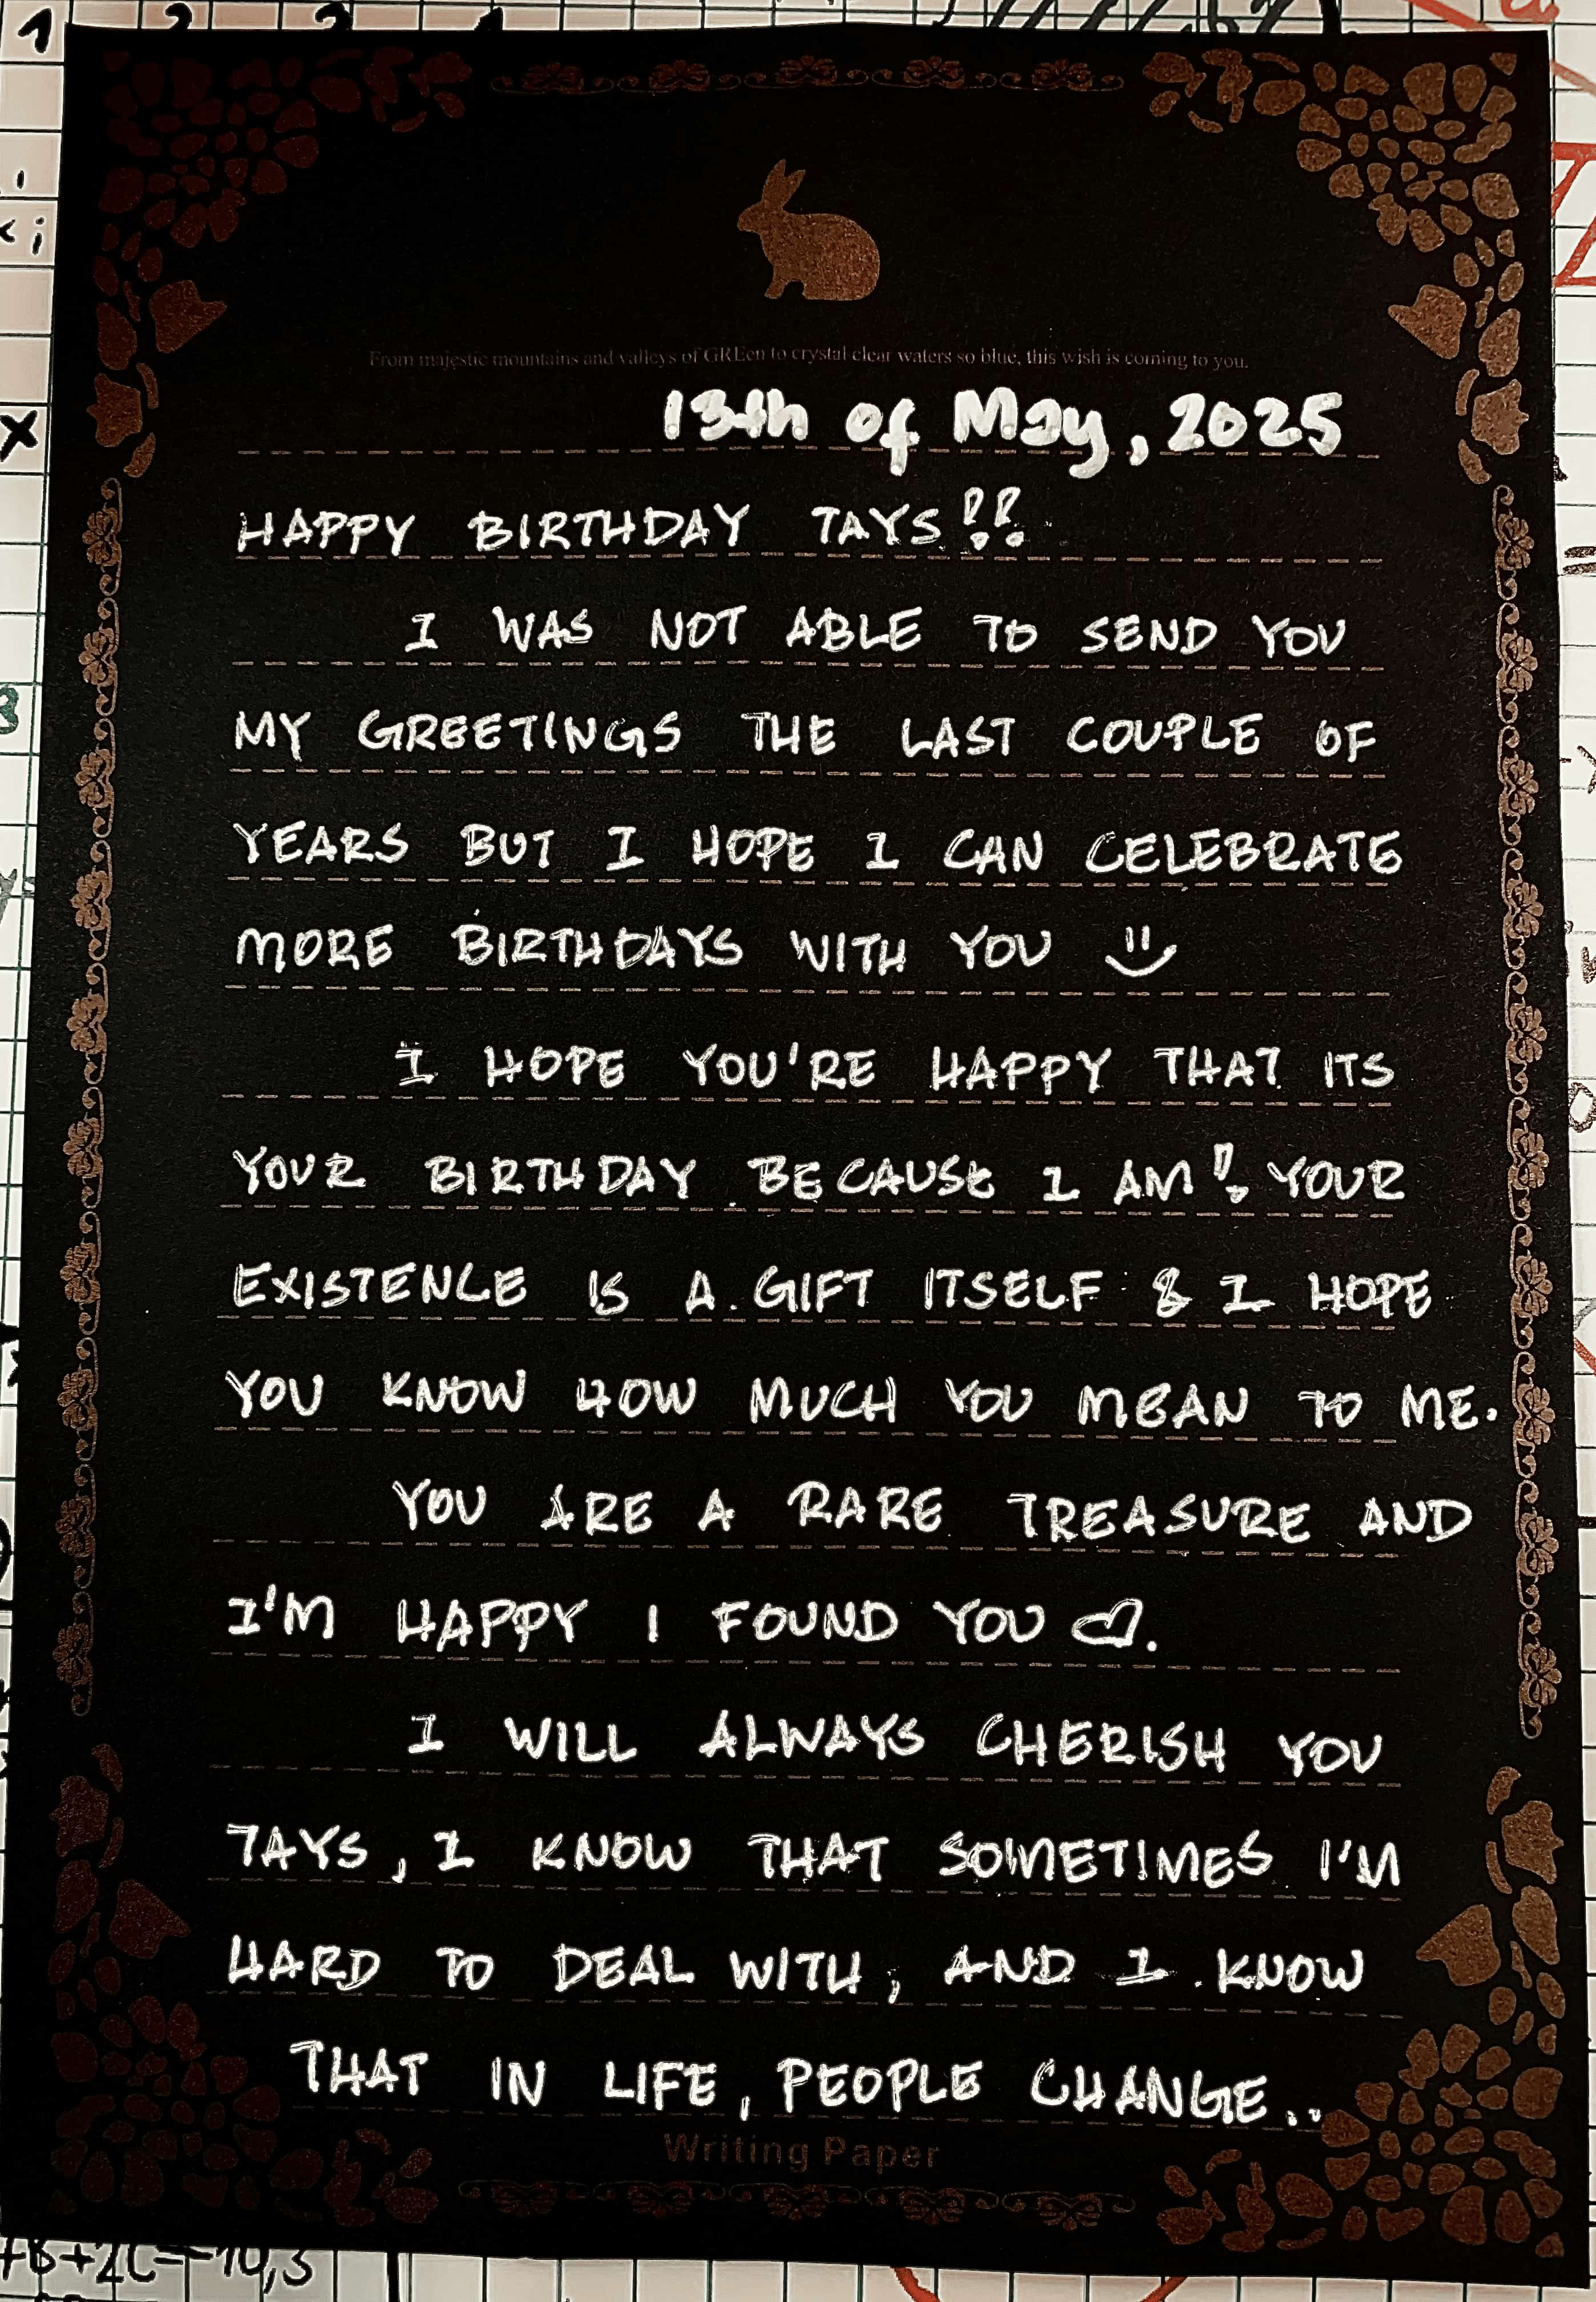 1 2 3 4
From majestic mountains and valleys of GREen to crystal clear waters so blue, this wish is coming to you.
13th of May, 2025
HAPPY BIRTHDAY TAYS!!
I WAS NOT ABLE TO SEND YOU
MY GREETINGS THE LAST COUPLE OF
YEARS BUT I HOPE I CAN CELEBRATE
MORE BIRTHDAYS WITH YOU
I HOPE YOU'RE HAPPY THAT ITS
YOUR BIRTHDAY BECAUSE I AM! YOUR
EXISTENCE IS A GIFT ITSELF & I HOPE
YOU KNOW HOW MUCH YOU MEAN TO ME.
YOU ARE A RARE TREASURE AND
I'M HAPPY I FOUND YOU ♡.
I WILL ALWAYS CHERISH YOU
TAYS, I KNOW THAT SOMETIMES I'M
HARD TO DEAL WITH, AND I KNOW
THAT IN LIFE, PEOPLE CHANGE..
Writing Paper
+B+2C=10,3